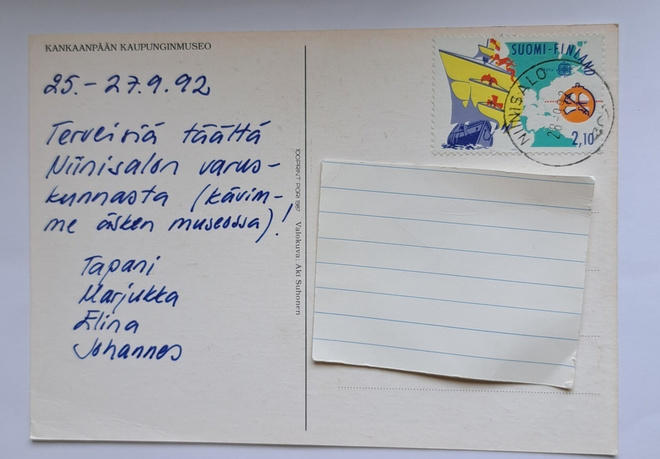 KANKAANPÄÄN KAUPUNGINMUSEO
25.-27.9.92
Terveisiä täältä
Niinisalon varus-
kunnasta (kävim-
me äsken museossa)!
Tapani
Marjukka
Elina
Johannes
Valokuva: Aki Suhonen
SUOMI-FINLAND
2,10
NIINISALO